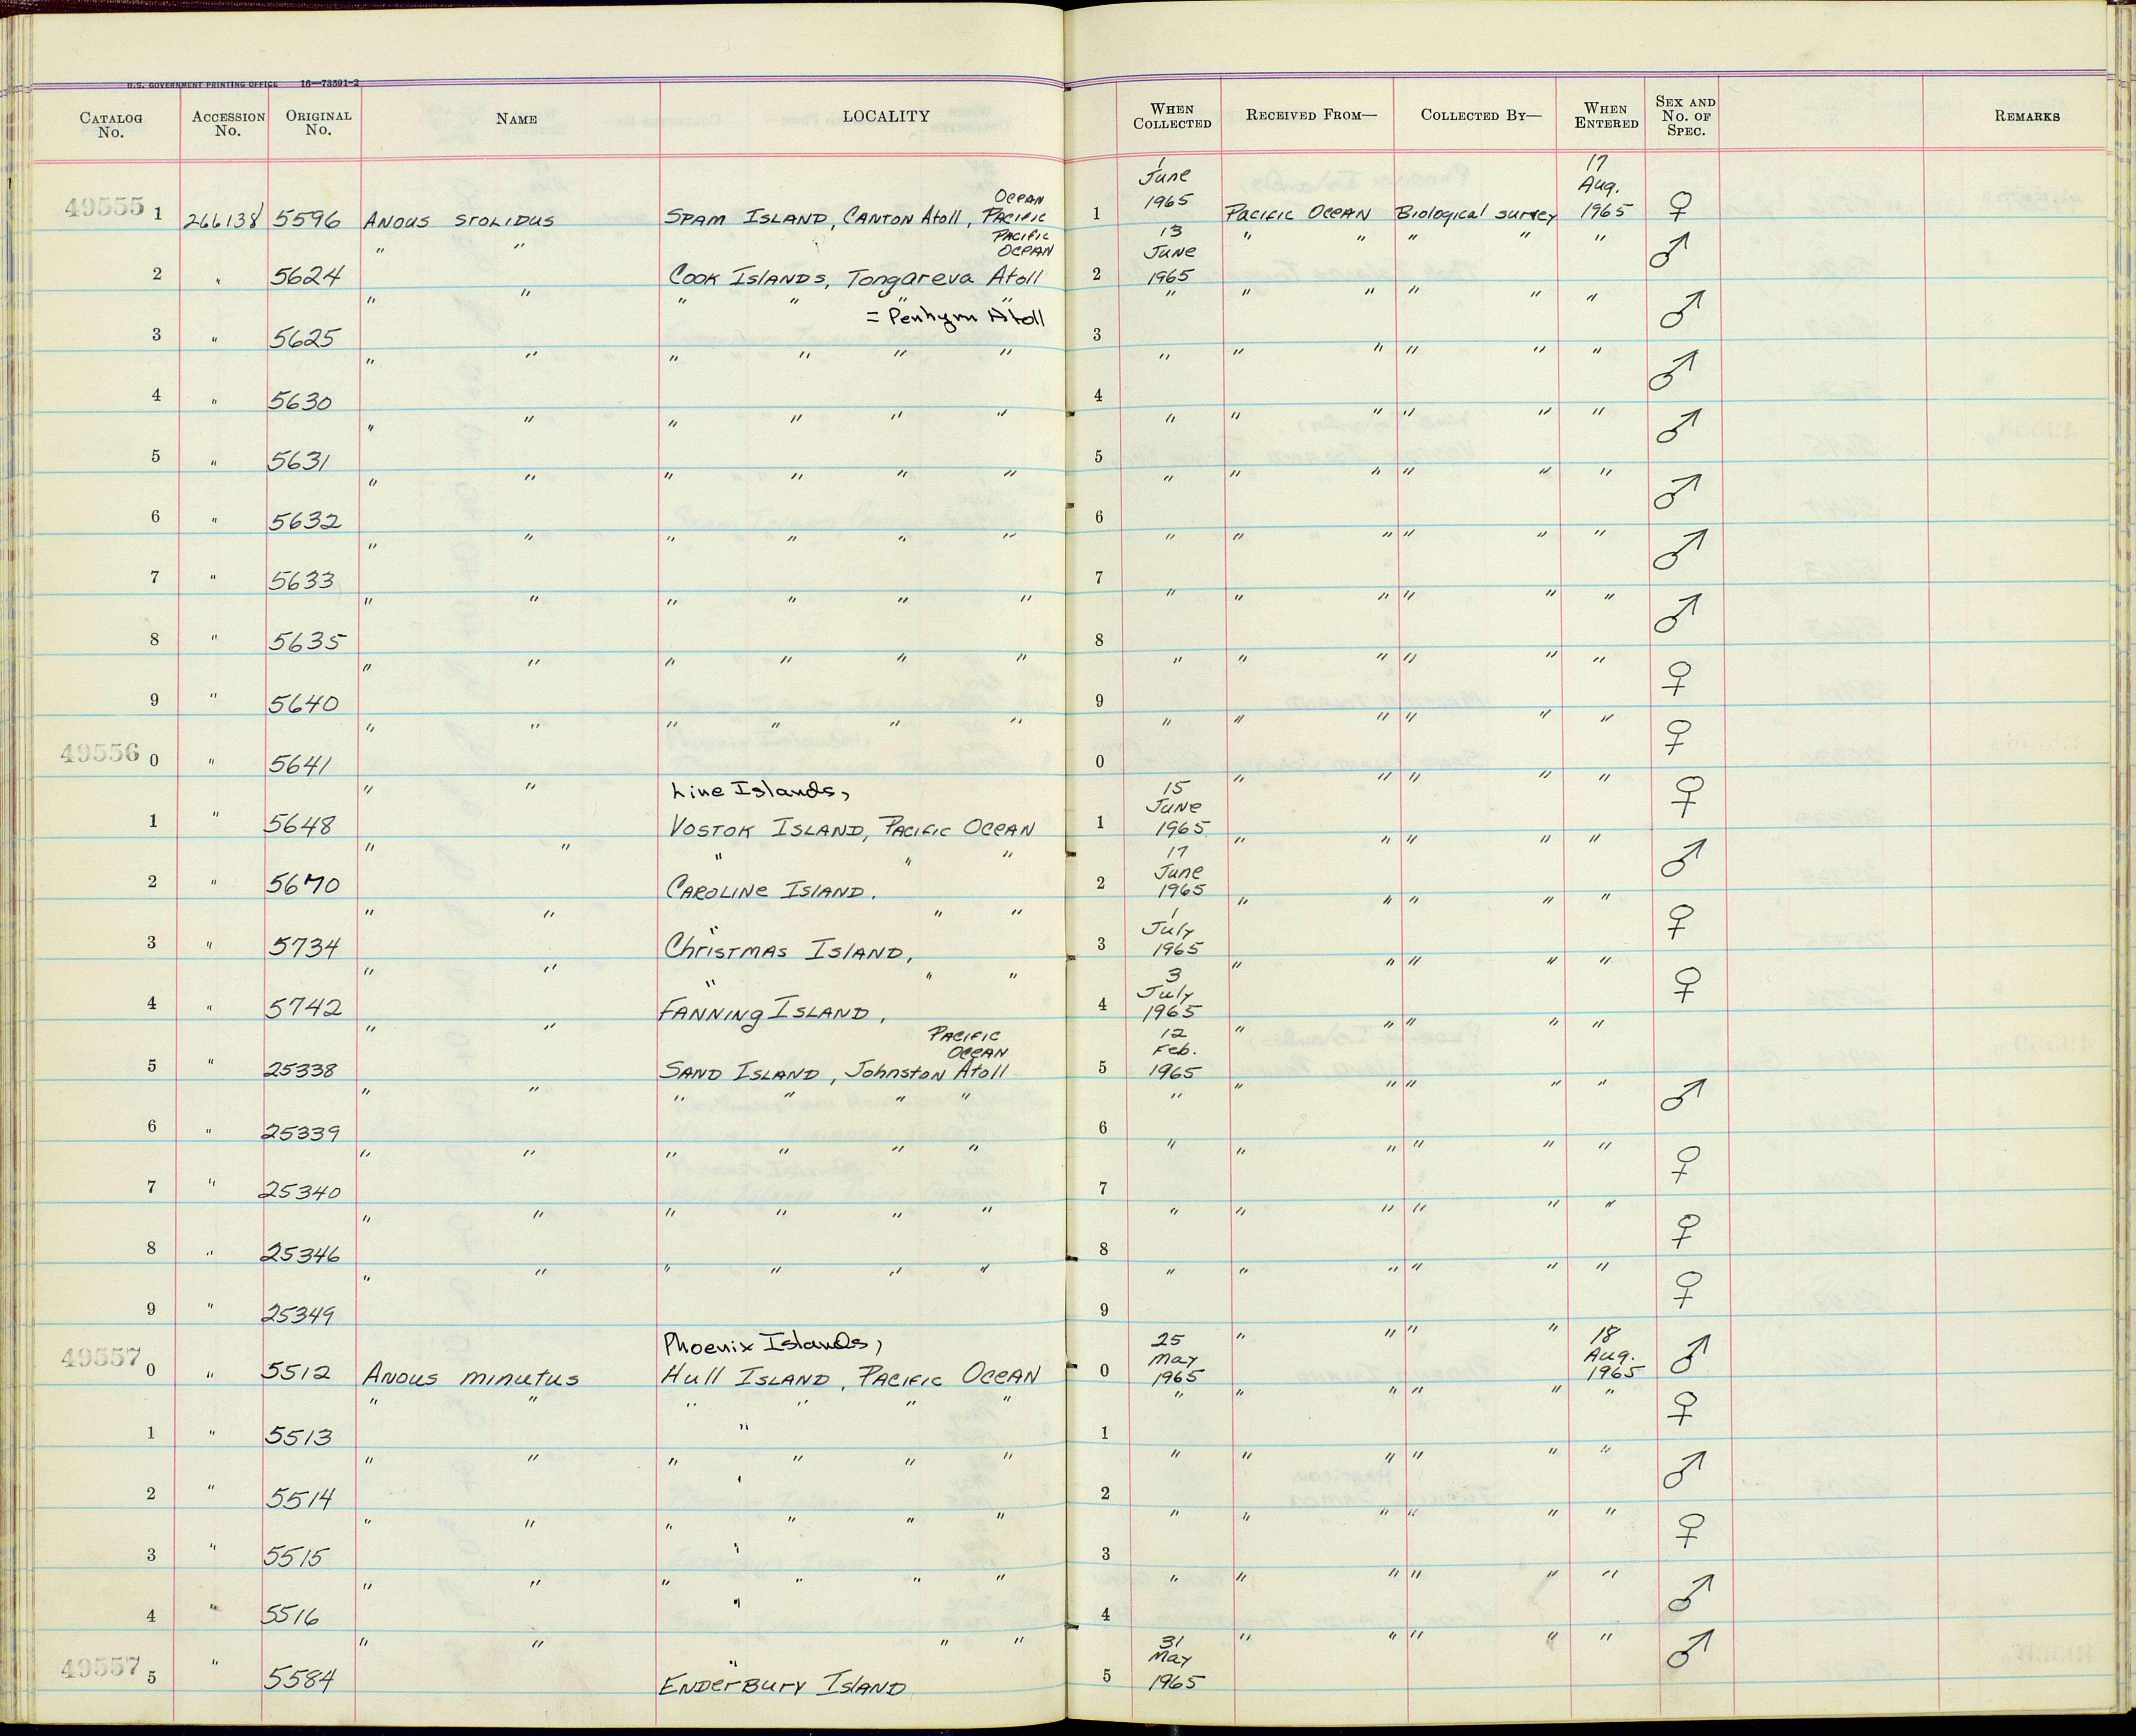 U.S. GOVERNMENT PRINTING OFFICE 16—73591-2
CATALOG No. ACCESSION No. ORIGINAL No. NAME LOCALITY WHEN COLLECTED RECEIVED FROM— COLLECTED BY— WHEN ENTERED SEX AND No. OF SPEC. REMARKS
49555 1 266138 5596 ANOUS STOLIDUS SPAM ISLAND, CANTON Atoll, PACIFIC OCEAN 1 1 June 1965 PACIFIC OCEAN Biological survey 17 Aug. 1965 ♀
2 " 5624 " " COOK ISLANDS, Tongareva Atoll PACIFIC OCEAN 2 13 June 1965 " " " " " ♂
3 " 5625 " " " " " " = Penhyrn Atoll 3 " " " " " " ♂
4 " 5630 " " " " " " 4 " " " " " " ♂
5 " 5631 " " " " " " 5 " " " " " " ♂
6 " 5632 " " " " " " 6 " " " " " " ♂
7 " 5633 " " " " " " 7 " " " " " " ♂
8 " 5635 " " " " " " 8 " " " " " " ♂
9 " 5640 " " " " " " 9 " " " " " " ♀
49556 0 " 5641 " " " " " " 0 " " " " " " ♀
1 " 5648 " " Line Islands, VOSTOK ISLAND, PACIFIC OCEAN 1 15 JUNE 1965 " " " " " ♀
2 " 5670 " " " CAROLINE ISLAND. " " 2 17 June 1965 " " " " " ♂
3 " 5734 " " " CHRISTMAS ISLAND, " " 3 1 July 1965 " " " " " ♀
4 " 5742 " " " FANNING ISLAND, " " 4 3 July 1965 " " " " " ♀
5 " 25338 " " SAND ISLAND, Johnston Atoll PACIFIC OCEAN 5 12 Feb. 1965 " " " " "
6 " 25339 " " " " " " 6 " " " " " " ♂
7 " 25340 " " " " " " 7 " " " " " " ♀
8 " 25346 " " " " " " 8 " " " " " " ♀
9 " 25349 " " " " " " 9 " " " " " " ♀
49557 0 " 5512 ANOUS MINUTUS Phoenix Islands, Hull ISLAND, PACIFIC OCEAN 0 25 May 1965 " " " " 18 Aug. 1965 ♂
1 " 5513 " " " " " " " 1 " " " " " " ♀
2 " 5514 " " " " " " " 2 " " " " " " ♂
3 " 5515 " " " " " " " 3 " " " " " " ♀
4 " 5516 " " " " " " " 4 " " " " " " ♂
49557 5 " 5584 " " " ENDERBURY ISLAND " " 5 31 May 1965 " " " " " ♂